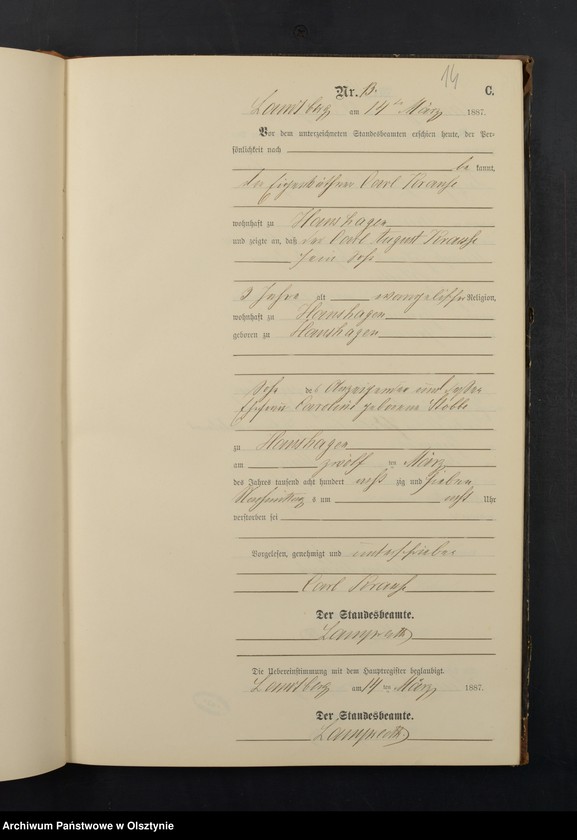 14
Nr. 13. C.
Landsberg am 14 ten März 1887.
Vor dem unterzeichneten Standesbeamten erschien heute, der Per-
sönlichkeit nach
be kannt,
der Eigenkäthner Carl Krause
wohnhaft zu Hanshagen
und zeigte an, daß der Carl August Krause
sein Sohn
3 Jahre alt evangelischer Religion,
wohnhaft zu Hanshagen
geboren zu Hanshagen
Sohn des Anzeigenden und seiner
Ehefrau Caroline geborene Stobbe
zu Hanshagen
am zwölf ten März
des Jahres tausend acht hundert acht zig und sieben
Nachmittag s um acht Uhr
verstorben sei
Vorgelesen, genehmigt und unterschrieben
Carl Krause
Der Standesbeamte.
Die Uebereinstimmung mit dem Hauptregister beglaubigt.
Landsberg am 14 ten März 1887.
Der Standesbeamte.
Archiwum Państwowe w Olsztynie